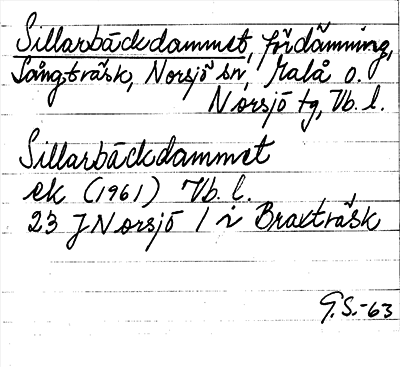 Sillarbäckdammet, fördämning,
Långträsk, Norsjö sn, Malå o.
Norsjö tg, Vb. l.
Sillarbäckdammet
ek (1961) Vb. l.
23 J Norsjö / i Braxträsk
G.S.-63